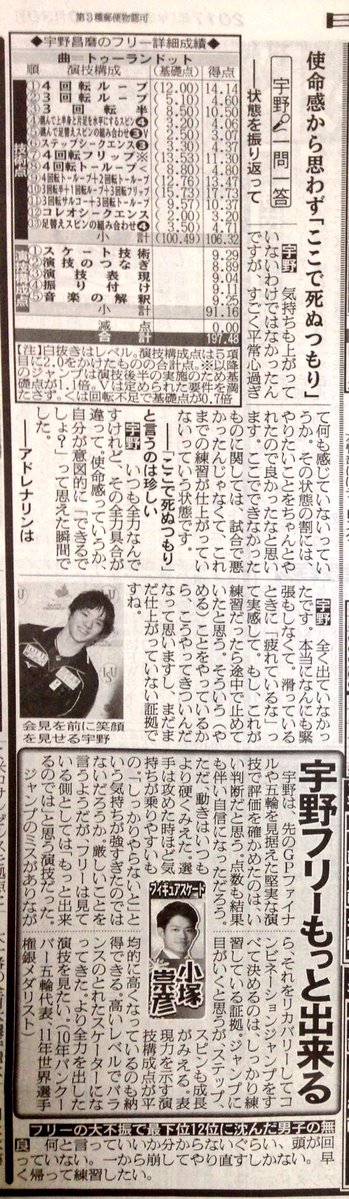 第3種郵便物認可
使命感から思わず「ここで死ぬつもり」
宇野 一問一答
――状態を振り返って
宇野 気持ちも上がって
いないわけではなかったん
ですが、すごく平常心過ぎ
て何も感じていないってい
うか。その状態の割には、
やりたいことをちゃんとや
れたので良かったなと思い
ます。ここでできなかった
ものに関しては、試合で悪
かったんじゃなくて、これ
までの練習が仕上がってい
ないっていう状態です。
――「ここで死ぬつもり」
と言うのは珍しい
宇野 いつも全力なんで
すけれど、その全力具合が
違って。使命感っていうか、
自分が意図的に「できるで
しょ?」って思えた瞬間で
した。
――アドレナリンは
宇野 全く出ていなかっ
たです。本当になんにも緊
張もしなくて、滑っている
ときに「疲れているな」っ
て実感して。もし、これが
練習だったら途中で止めて
いたと思う。そういうや
めることをやっているか
ら、こうやってきついんだ
なって思いますし、まだま
だ仕上がっていない証拠で
すね。
会見を前に笑顔
を見せる宇野
◆宇野昌磨のフリー詳細成績◆
曲 トゥーランドット
順 演技構成 (基礎点) 得点
技術点
①4回転ループ (12.00) 14.14
②3回転ループ (5.10) 4.60
③3回転半 (8.50) 10.07
④跳んで上半身と片足を水平にするスピン❹
⑤跳んで足替えスピンの組み合わせ❸V
⑥ステップシークエンス❸ (3.30) 4.37
⑦4回転フリップ※ (13.53) 11.30
⑧4回転トーループ< 4.80
⑨4回転トーループ+2回転トーループ 13.47
⑩3回転半+1回転ループ+3回転フリップ
⑪3回転サルコー+3回転トーループ (9.57) 10.37
⑫コレオシークエンス (2.00) 3.20
⑬足替えスピンの組み合わせ❹ 4.71
小計 (100.49) 106.32
演技構成点
①スケート技術 9.29
②演技のつなぎ 8.89
③演技表現 9.04
④振り付け 9.11
⑤音楽の解釈 9.25
小計 91.16
減点 0.00
計 197.48
【注】白抜きはレベル。演技構成点は5項
目に2.0をかけたものの合計点。※以降基
のジャンプは演技後半の実施のため基
礎点が1.1倍。Vは定められた要件を満
たさず。<は回転不足で基礎点が0.7倍
宇野フリーもっと出来る
フィギュアスケート
小塚崇彦
宇野は、先のGPファイナ
ルや五輪を見据えた堅実な演
技で評価を確かめたのは、い
い判断だと思う。点数も結果
も伴い自信になっただろう。
ただ、動きはいつも
より硬くみえた。選
手は攻めた時ほど気
持ちが乗りやすいも
の。"しっかりやらないと"と
いう気持ちが強すぎたのでは
ないだろうか。厳しいことを
言うようだが、フリーは見て
いる側としては、もっと出来
るのでは?と思う演技だった。
ジャンプのミスがありなが
ら、それをリカバリーしてコ
ンビネーションジャンプをす
べて決めるのは、しっかり練
習している証拠。ジャンプに
目がいくと思うが、ステップ、
スピンも成長
がみえる。表
現力を示す演
技構成点が平
均的に高くなっているのも納
得できる。高いレベルでバラ
ンスのとれたスケーターにな
ってきた。より全力を出した
演技を見たい。(10年バンクー
バー五輪代表、11年世界選手
権銀メダリスト)
フリーの大不振で最下位12位に沈んだ男子の無
良 何と言っていいか分からないぐらい、頭が回
っていない。一から崩してやり直すしかない。早
く帰って練習したい。